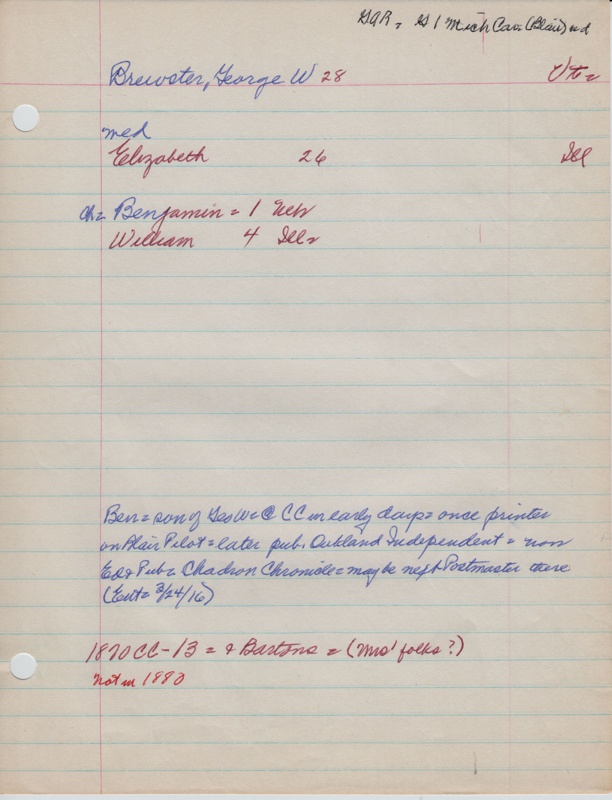 GAR = G 1 Mich Cav. (Blair) nd
Brewster, George W 28 Vt =
med
Elizabeth 26 Ill
ch= Benjamin = 1 Neb
William 4 Ill =
Ben = son of Geo W = @ CC in early days = once printer
on Blair Pilot = later pub. Oakland Independent = now
Ed & Pub = Chadron Chronicle = may be next Postmaster there
(Ent = 3/24/16)
1870 CC - 13 = & Bartons = (Mrs' folks?)
not in 1880